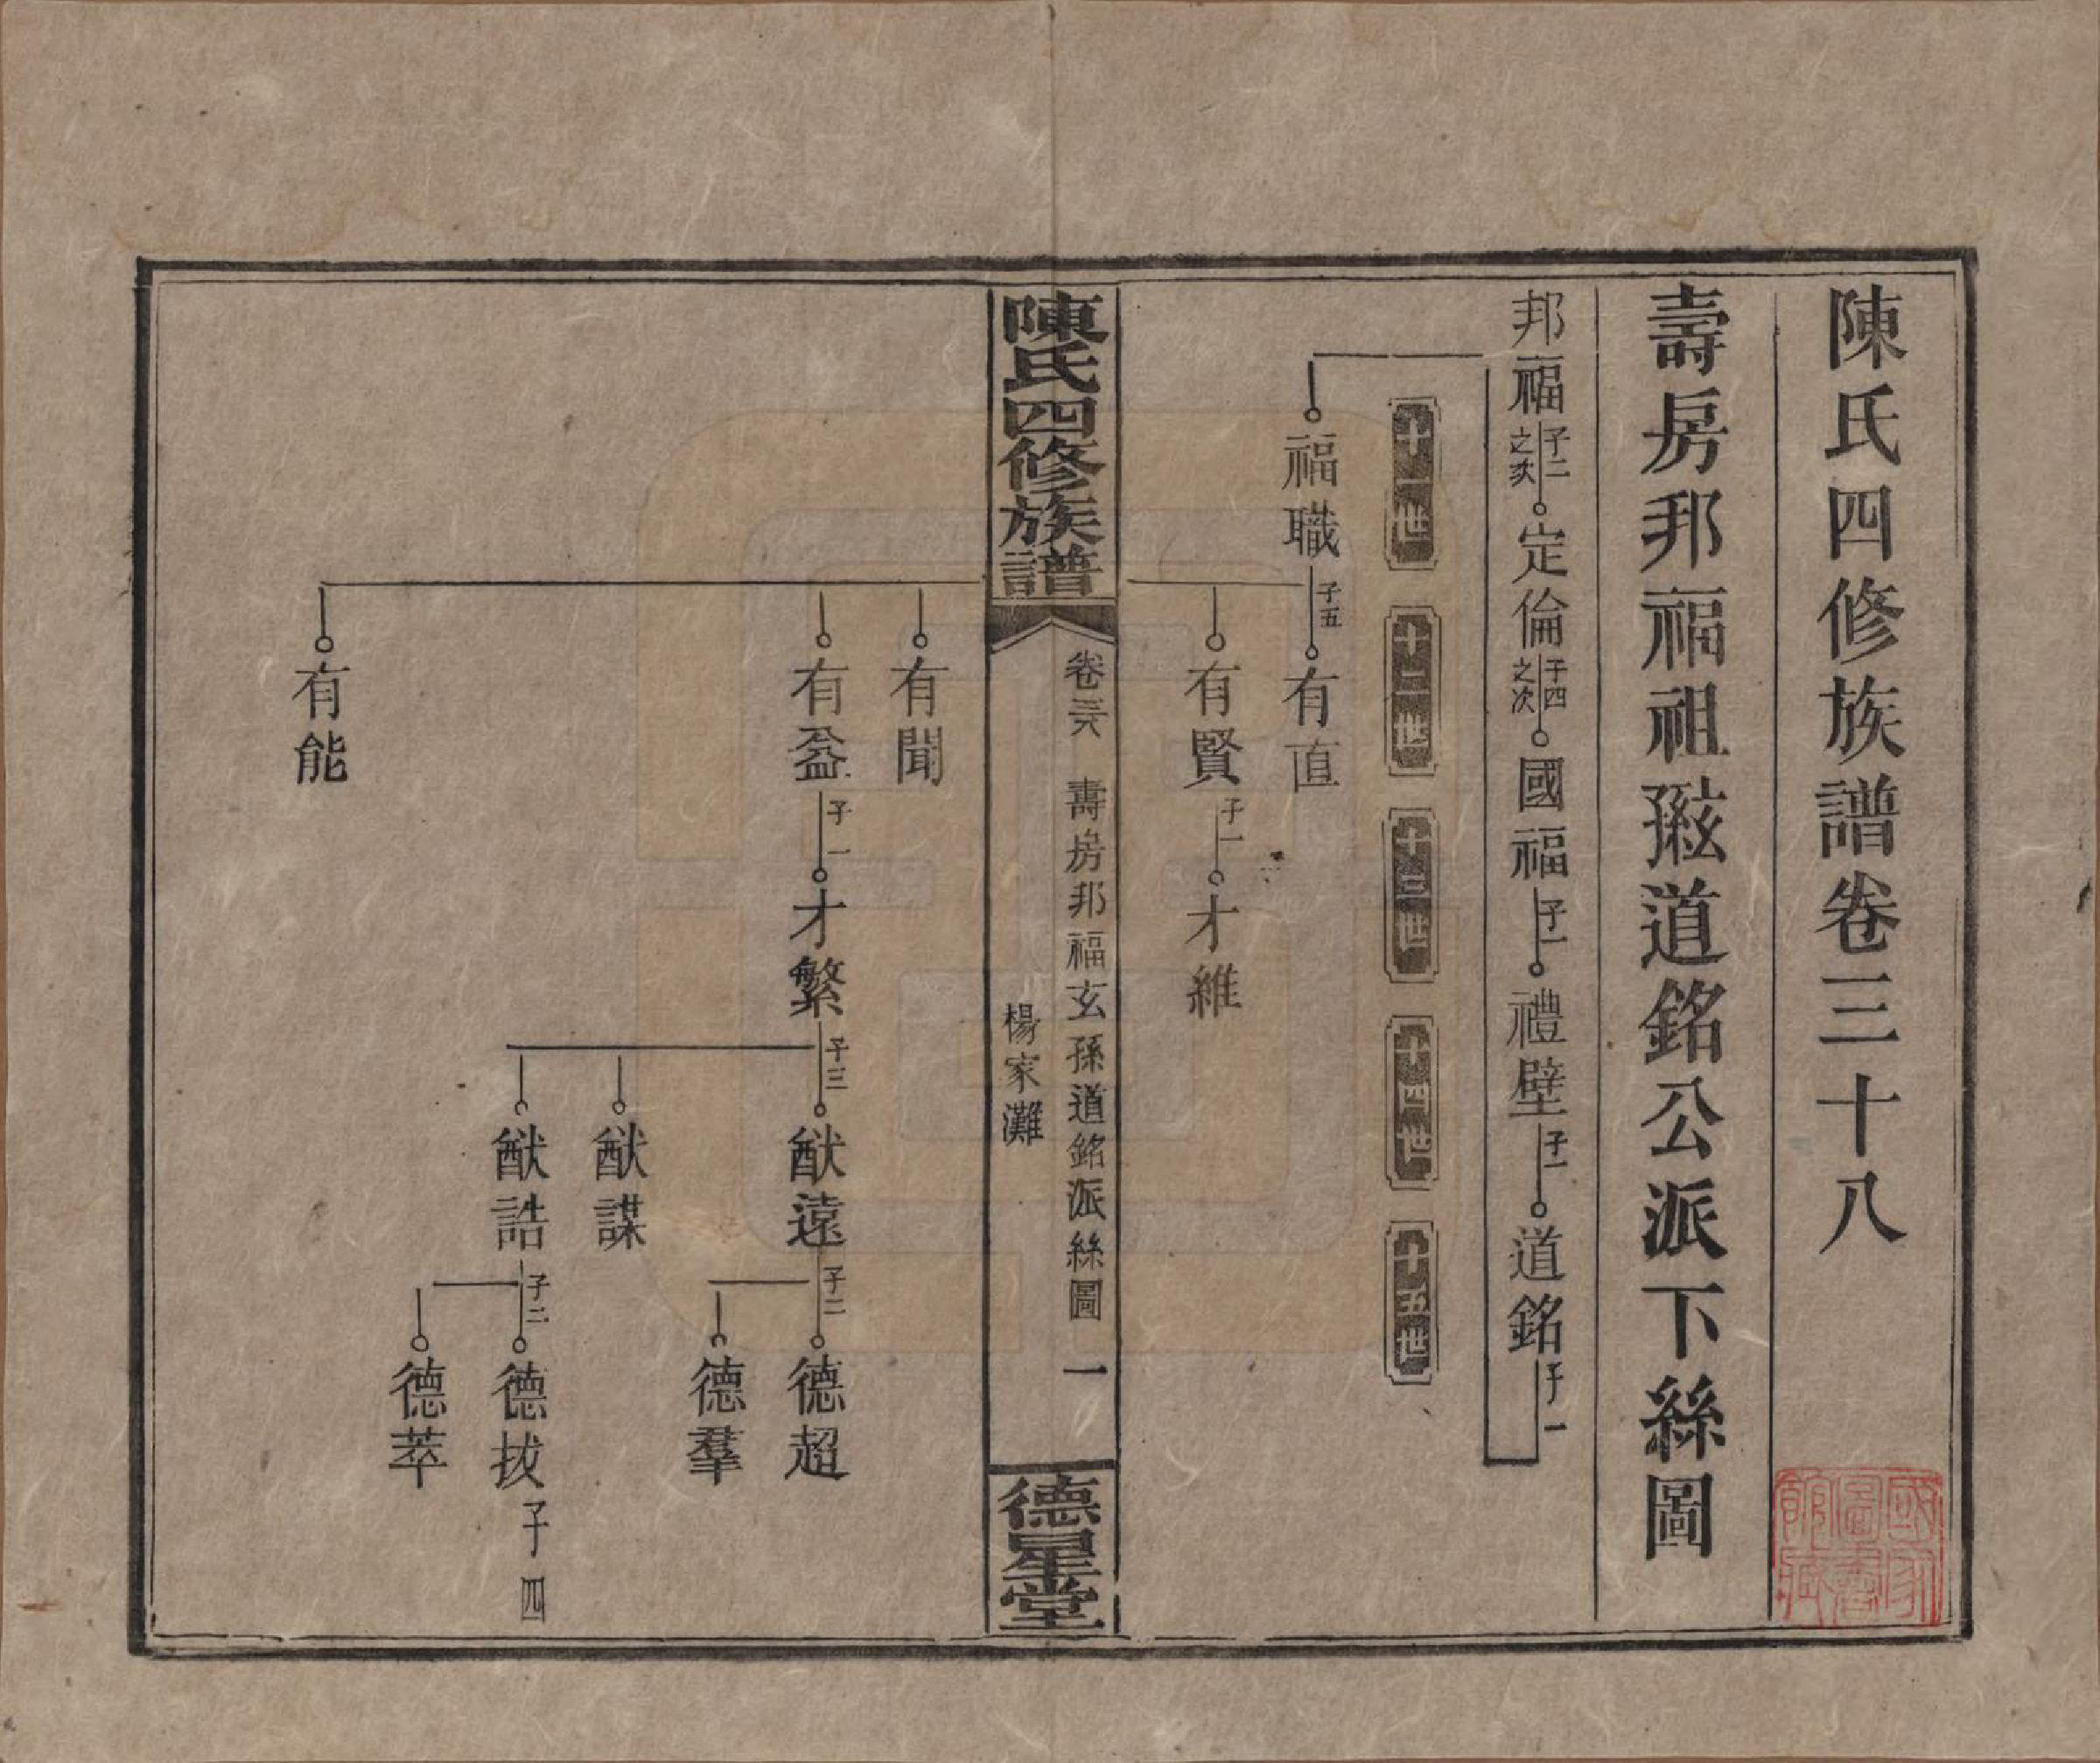 陳氏四修族譜卷三十八
壽房邦福祖𤣥道銘公派下絲圖
邦福 子二之次 定倫 子四之次 國福 子一 禮壁 子一 道銘 子一
十一世 十二世 十三世 十四世 十五世
福職 子五 有直
有賢 子一 才維
陳氏四修族譜 卷三八 壽房邦福玄孫道銘派絲圖 一
楊家灘
德星堂
有聞
有益 子一 才繁 子三 猷遠 子二 德超
德羣
猷謀
猷誥 子二 德拔 子四
德萃
有能
國家圖書館藏